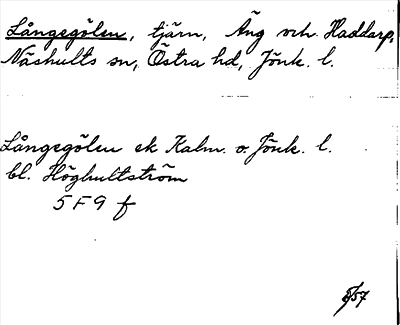 Långegölen, tjärn, Äng och Haddarp,
Näshults sn, Östra hd, Jönk. l.
Långegölen ek Kalm. o. Jönk. l.
bl. Höghultström
5 F 9 f